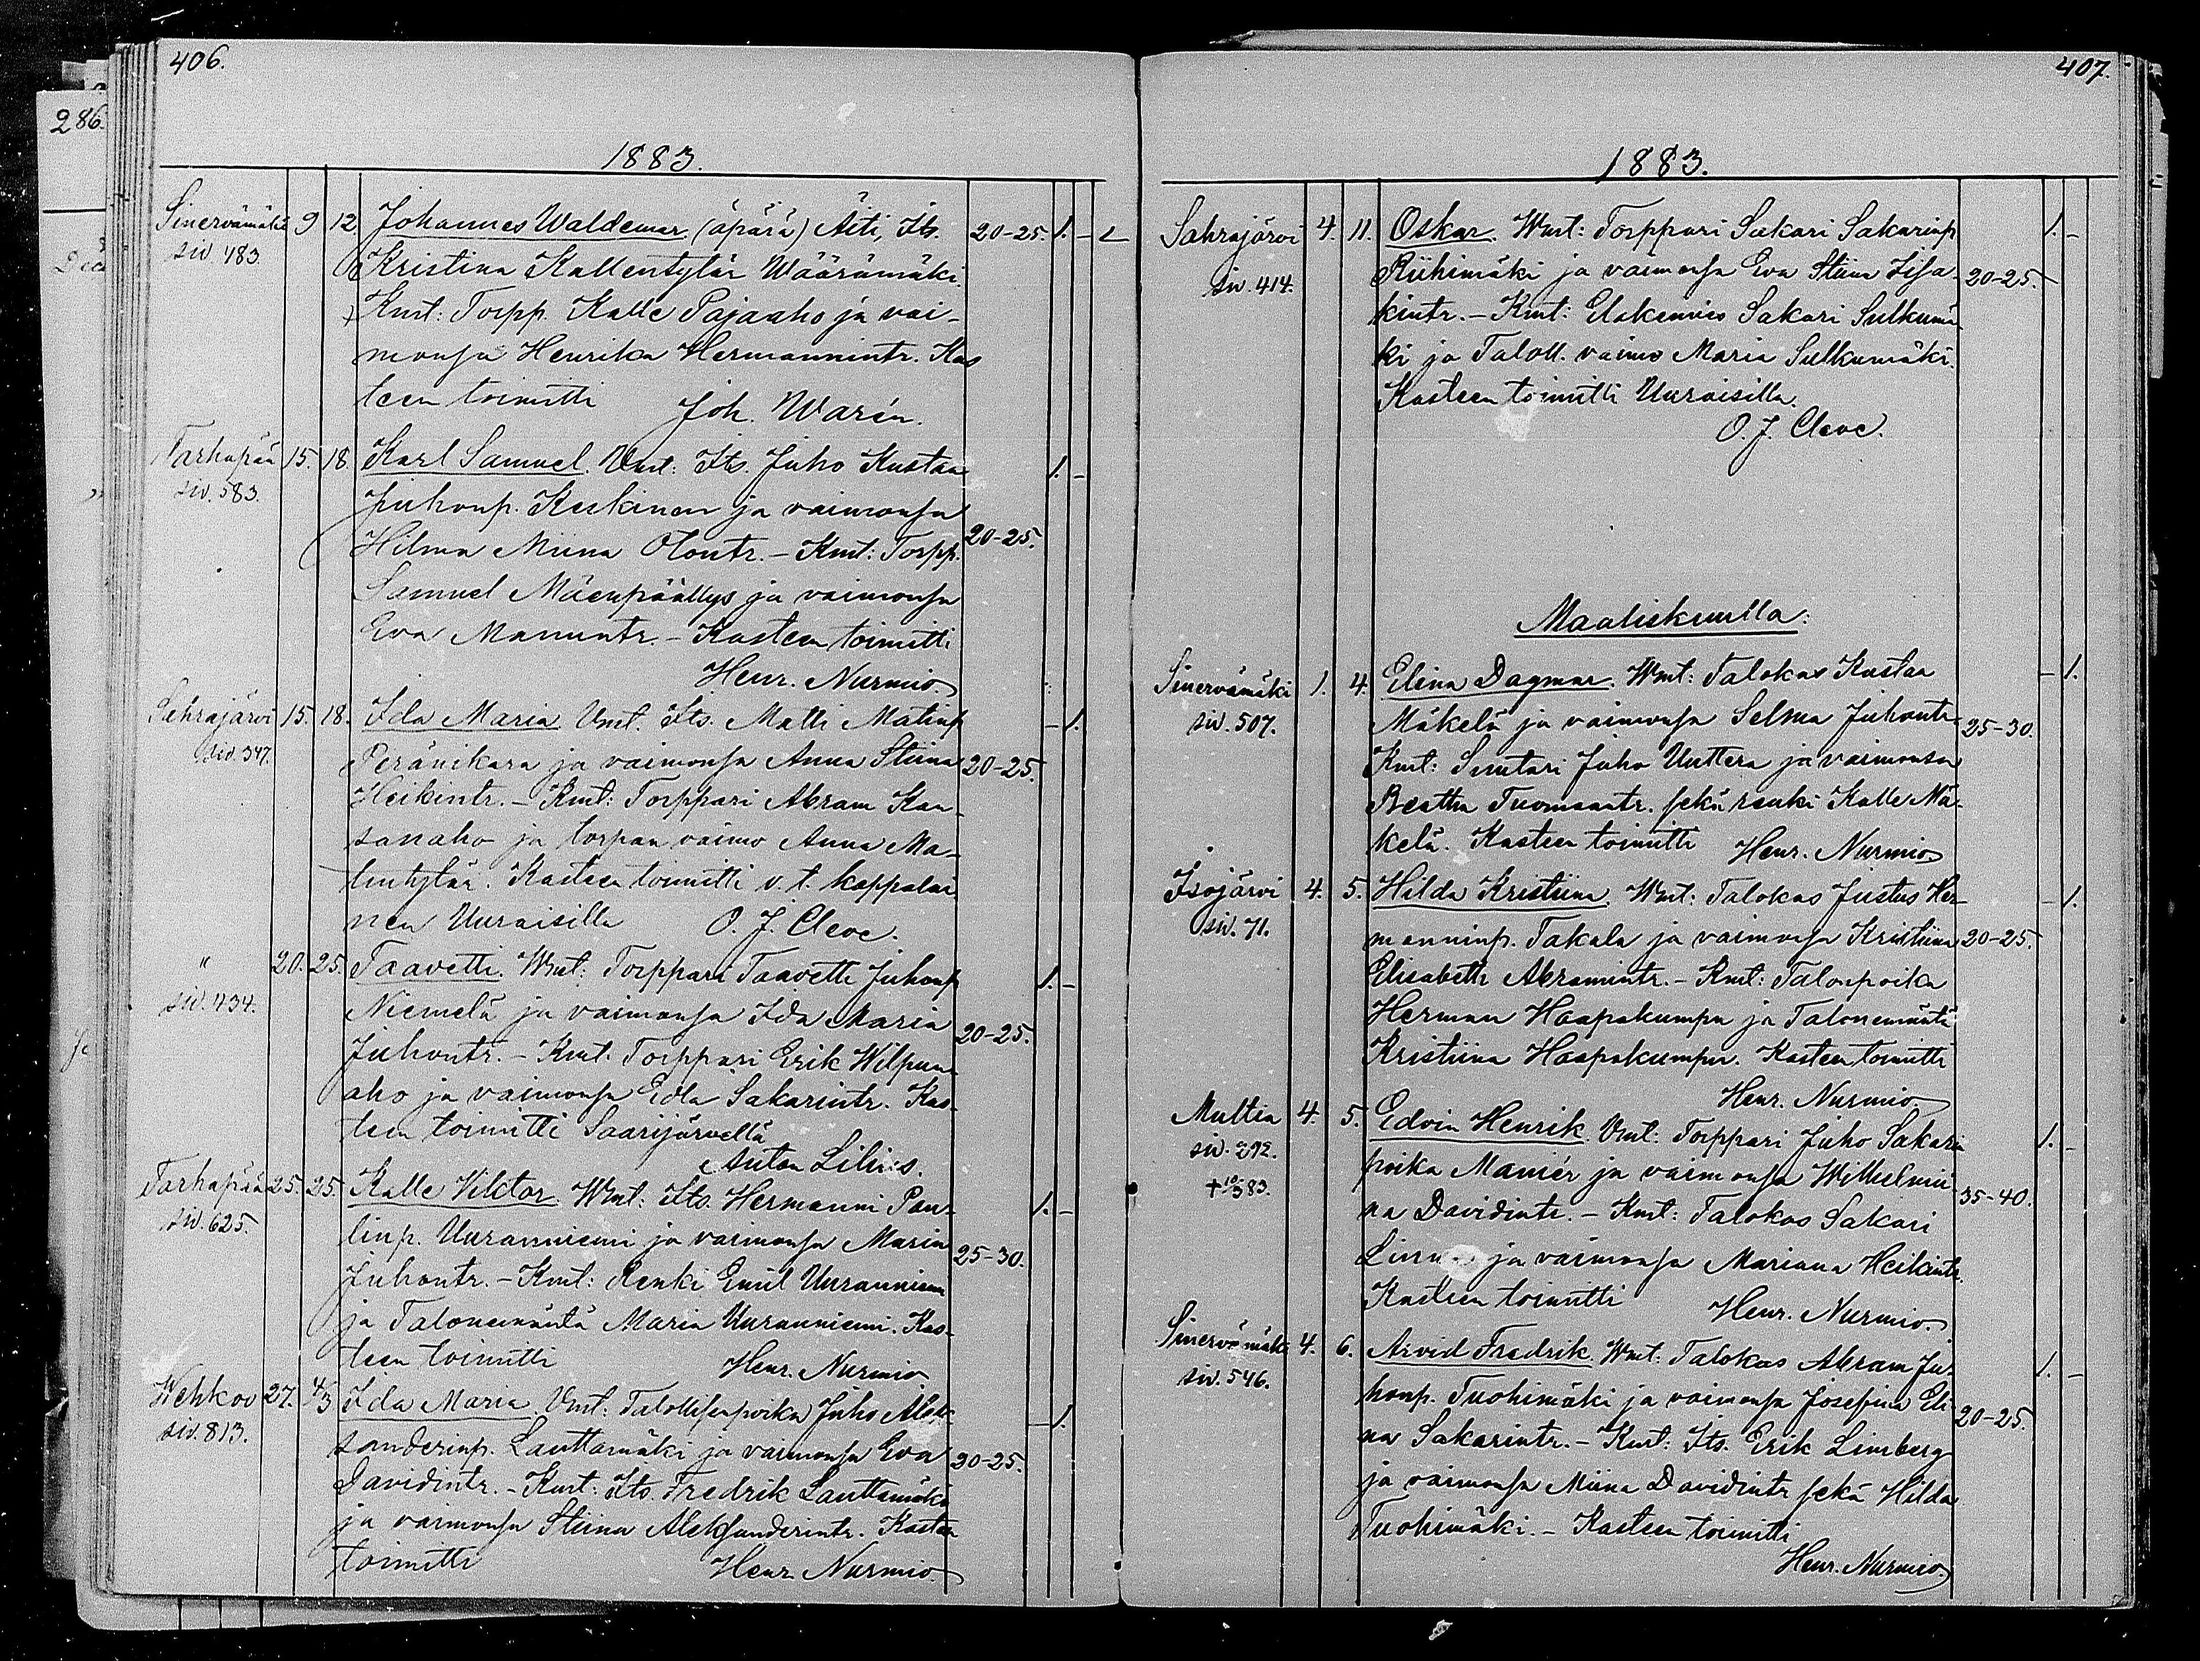 406.
286.
1883.
Sinervämäki 9 12 Johannes Waldemar (äpärä) Äiti, Its. 20-25. 1. -
siv. 483. Kristina Kallentytär Wäärämäki.
Kmt: Torpp. Kalle Pajaaho ja vai-
monsa Henrika Hermannintr. Kas
teen toimitti Joh. Warén.
Tarhapää 15. 18. Karl Samuel. Vmt: Its. Juho Kustaa 1. -
siv. 583. Juhonp. Keskinen ja vaimonsa
Hilma Miina Olontr. - Kmt: Torpp. 20-25.
Samuel Mäenpäällys ja vaimonsa
Eva Manuntr. - Kasteen toimitti
Henr. Nurmio.
Sahrajärvi 15. 18. Ida Maria. Vmt. Its. Matti Matinp - 1.
siv. 347. Peränikara ja vaimonsa Anna Stiina 20-25.
Heikintr. - Kmt: Torppari Abram Kan-
sanaho ja torpan vaimo Anna Ma-
tintytär. Kasteen toimitti v. t. kappalai-
nen Uuraisilla O. J. Cleve.
" 20. 25. Taavetti. Wmt: Torppari Taavetti Juhonp 1. -
siv. 434. Niemelä ja vaimonsa Ida Maria 20-25.
Juhontr. - Kmt. Torppari Erik Wilpun-
aho ja vaimonsa Edla Sakarintr. Kas-
teen toimitti Saarijärvellä
Anton Lilius.
Tarhapää 25. 25. Kalle Viktor. Wmt: Its. Hermanni Pau- 1. -
siv. 625. linp. Uuranniemi ja vaimonsa Maria 25-30.
Juhontr. - Kmt: Renki Emil Uuranniemi
ja Talonemäntä Maria Uuranniemi. Kas-
teen toimitti Henr. Nurmio
Wehkoo 27. 4/3 Ida Maria. Vmt: Talollisenpoika Juho Alek - 1.
siv. 813. sanderinp. Lauttamäki ja vaimonsa Eva 20-25.
Davidintr. - Kmt: Its. Fredrik Lauttamäki
ja vaimonsa Stiina Aleksanderintr. Kasteen
toimitti Henr. Nurmio.
407.
1883.
Sahrajärvi 4. 11. Oskar. Wmt: Torppari Sakari Sakarinp 1. -
siv. 414. Riihimäki ja vaimonsa Eva Stiina Iisa- 20-25.
kintr. - Kmt: Elakemies Sakari Sulkumä
ki ja Taloll. vaimo Maria Sulkumäki.
Kasteen toimitti Uuraisilla.
O. J. Cleve.
Maaliskuulla:
Sinervämäki 1. 4. Elina Dagmar. Wmt: Talokas Kustaa - 1.
siv. 507. Mäkelä ja vaimonsa Selma Juhontr 25-30.
Kmt: Suutari Juho Uuttera ja vaimonsa
Beatta Tuomaantr. sekä renki Kalle Mä-
kelä. Kasteen toimitti Henr. Nurmio
Isojärvi 4. 5. Hilda Kristiina. Wmt: Talokas Justus Her- - 1.
siv. 71. manninp. Takala ja vaimonsa Kristiina 20-25.
Elisabetti Abramintr. - Kmt: Talonpoika
Herman Haapakumpu ja Talonemäntä
Kristiina Haapakumpu. Kasteen toimitti
Henr. Nurmio
Multia 4. 5. Edvin Henrik. Vmt: Torppari Juho Sakari 1. -
siv. 292. poika Maniér ja vaimonsa Wilhelmii 35-40.
+ 10/3 83. na Davidintr. - Kmt: Talokas Sakari
ja vaimonsa Mariana Heikintr.
Kasteen toimitti Henr. Nurmio.
Sinervämäki 4. 6. Arvid Fredrik. Wmt: Talokas Abram Ju- 1. -
siv. 546. honp. Tuohimäki ja vaimonsa Josefina Eli 20-25.
na Sakarintr. - Kmt: Its. Erik Limberg
ja vaimonsa Miina Davidintr sekä Hilda
Tuohimäki. - Kasteen toimitti
Henr. Nurmio.